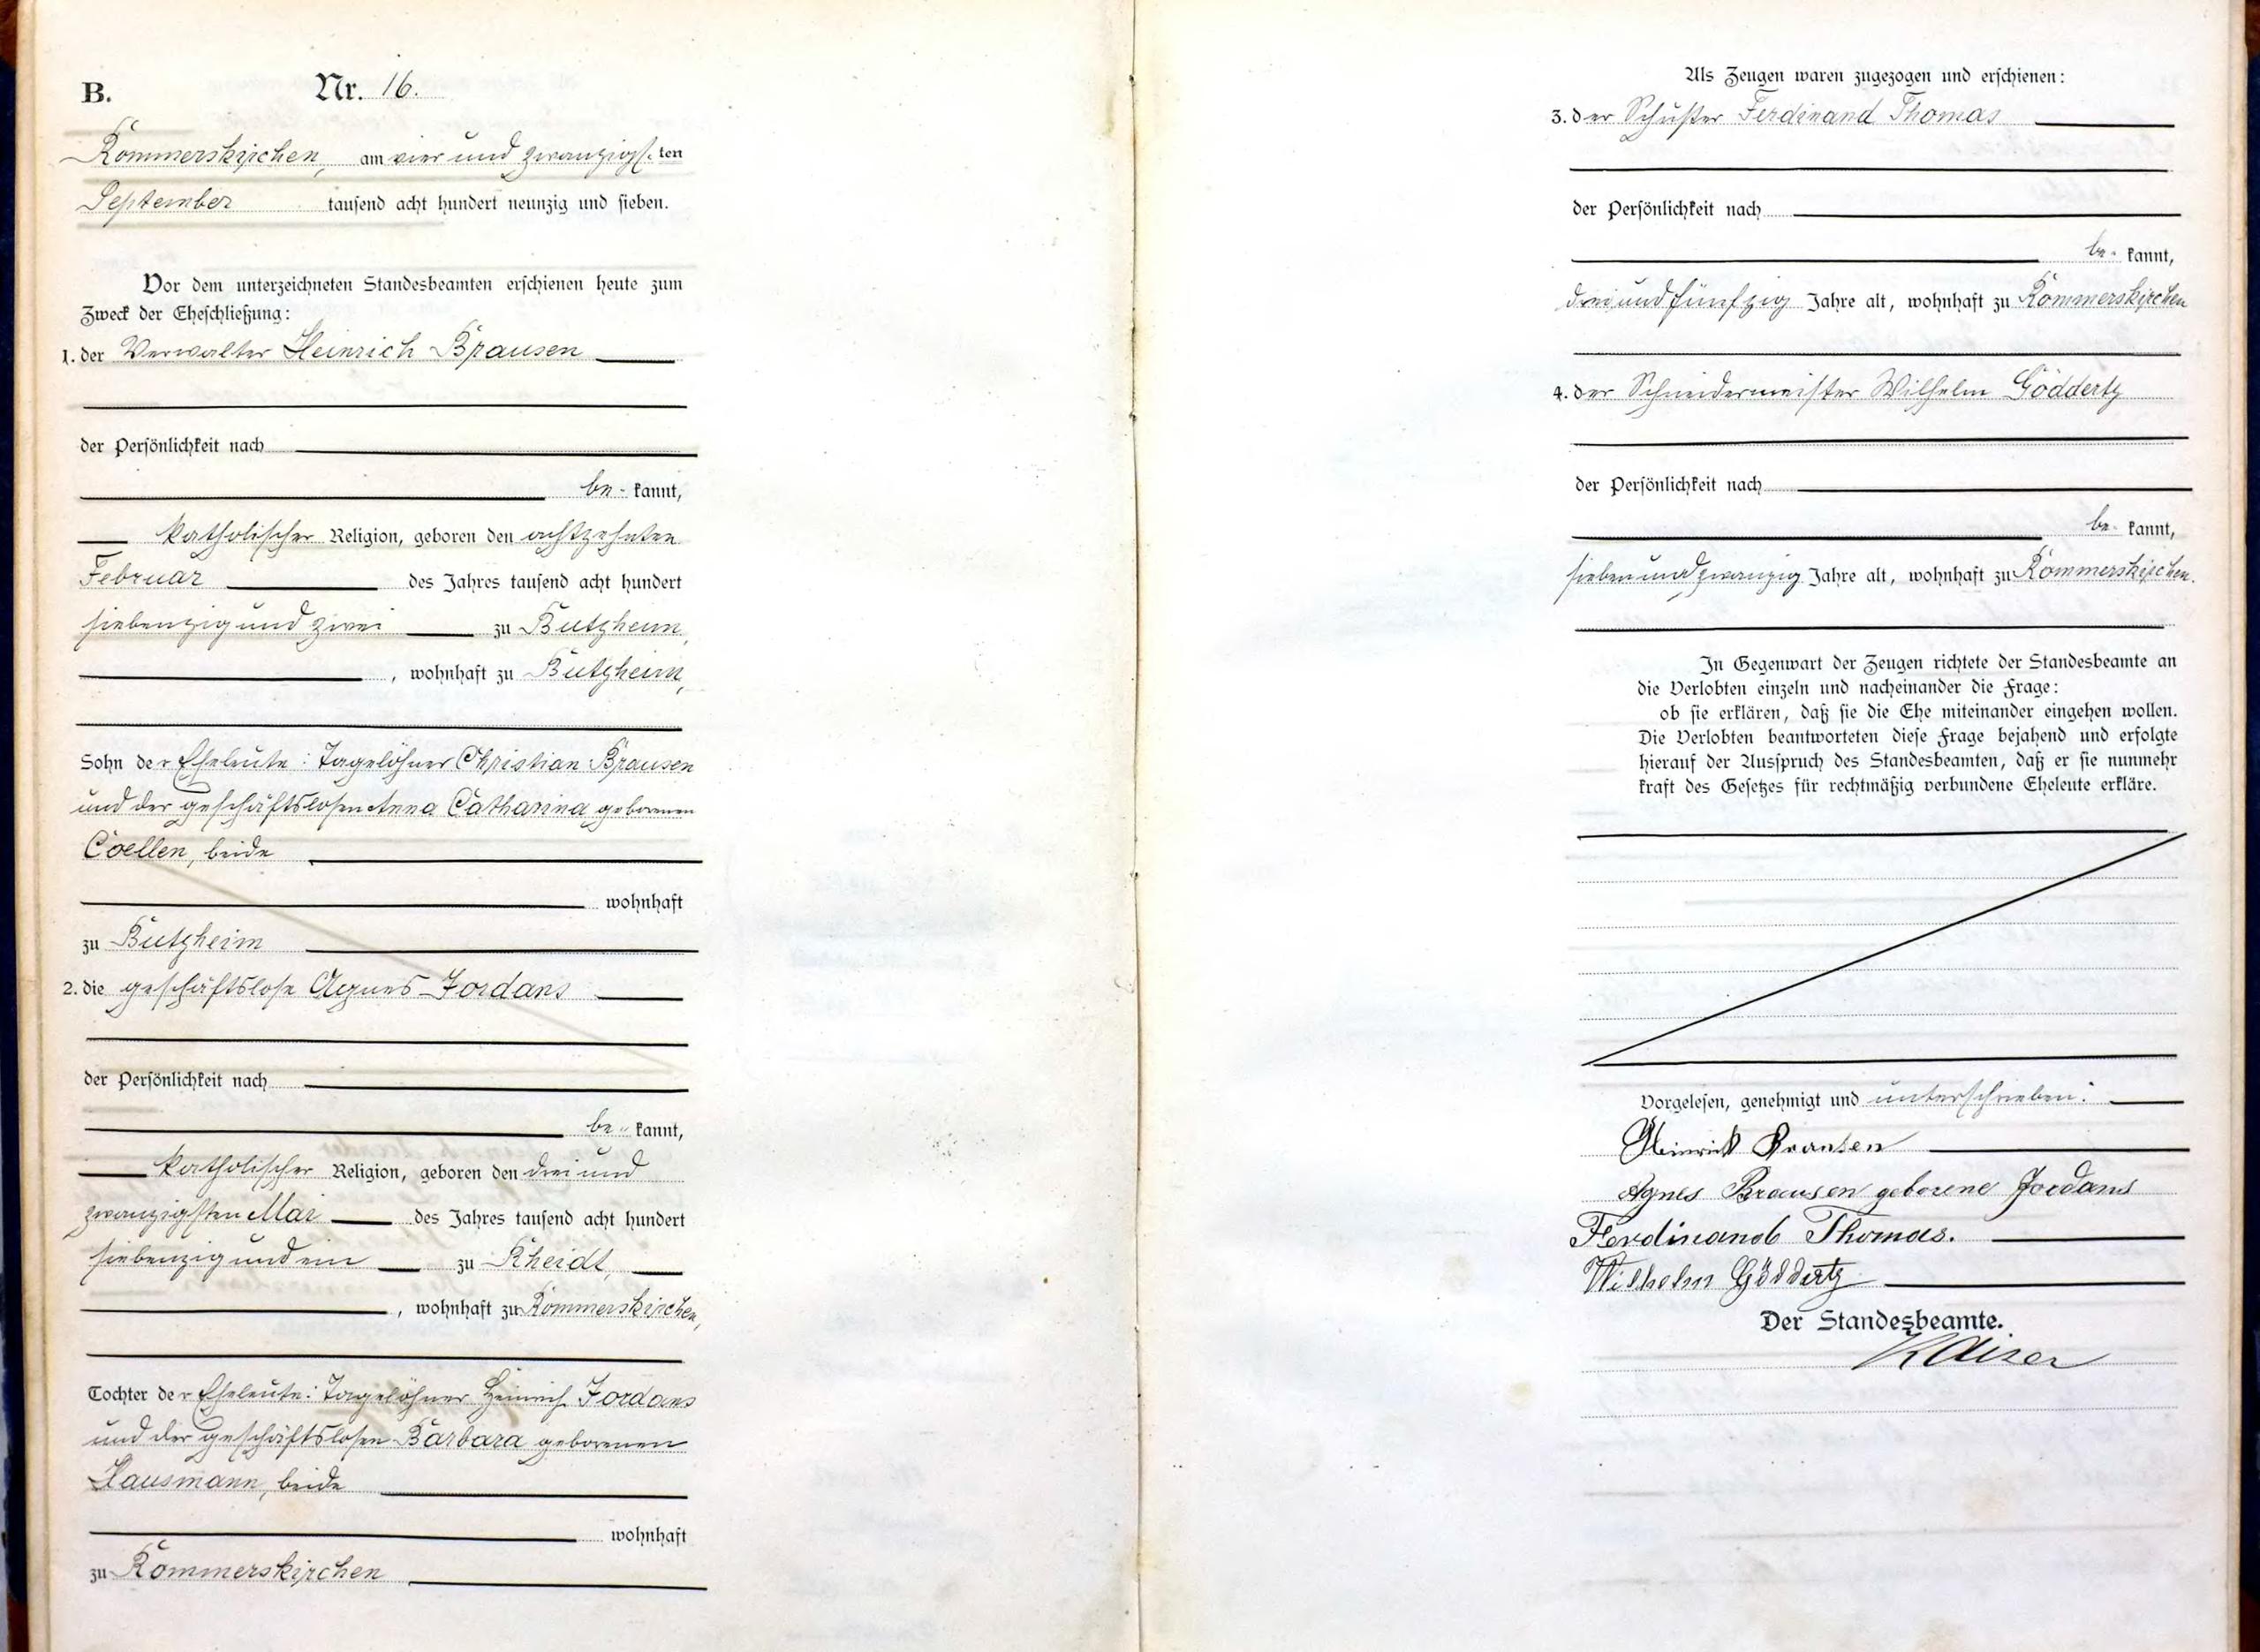 B. Nr. 16.
Rommerskirchen, am vier und zwanzigsten
September tausend acht hundert neunzig und sieben.
Vor dem unterzeichneten Standesbeamten erschienen heute zum
Zweck der Eheschließung:
1. der Verwalter Heinrich Brausen
der Persönlichkeit nach
be- kannt,
katholischer Religion, geboren den achtzehnten
Februar des Jahres tausend acht hundert
siebenzig und zwei zu Butzheim,
, wohnhaft zu Butzheim,
Sohn der Eheleute: Tagelöhner Christian Brausen
und der geschäftslosen Anna Catharina geborenen
Coellen, beide
wohnhaft
zu Butzheim
2. die geschäftslose Agnes Jordans
der Persönlichkeit nach
be- kannt,
katholischer Religion, geboren den drei und
zwanzigsten Mai des Jahres tausend acht hundert
siebenzig und ein zu Rheidt,
, wohnhaft zu Rommerskirchen,
Tochter der Eheleute: Tagelöhner Heinrich Jordans
und der geschäftslosen Barbara geborenen
Hausmann, beide
wohnhaft
zu Rommerskirchen
Als Zeugen waren zugezogen und erschienen:
3. der Schuster Ferdinand Thomas
der Persönlichkeit nach
be- kannt,
drei und fünfzig Jahre alt, wohnhaft zu Rommerskirchen
4. der Schneidermeister Wilhelm Göddertz
der Persönlichkeit nach
be- kannt,
sieben und zwanzig Jahre alt, wohnhaft zu Rommerskirchen.
In Gegenwart der Zeugen richtete der Standesbeamte an
die Verlobten einzeln und nacheinander die Frage:
ob sie erklären, daß sie die Ehe miteinander eingehen wollen.
Die Verlobten beantworteten diese Frage bejahend und erfolgte
hierauf der Ausspruch des Standesbeamten, daß er sie nunmehr
kraft des Gesetzes für rechtmäßig verbundene Eheleute erkläre.
Vorgelesen, genehmigt und unterschrieben:
Heinrich Brausen
Agnes Brausen geborene Jordans
Ferdinand Thomas.
Wilhelm Göddertz
Der Standesbeamte.
Kaiser